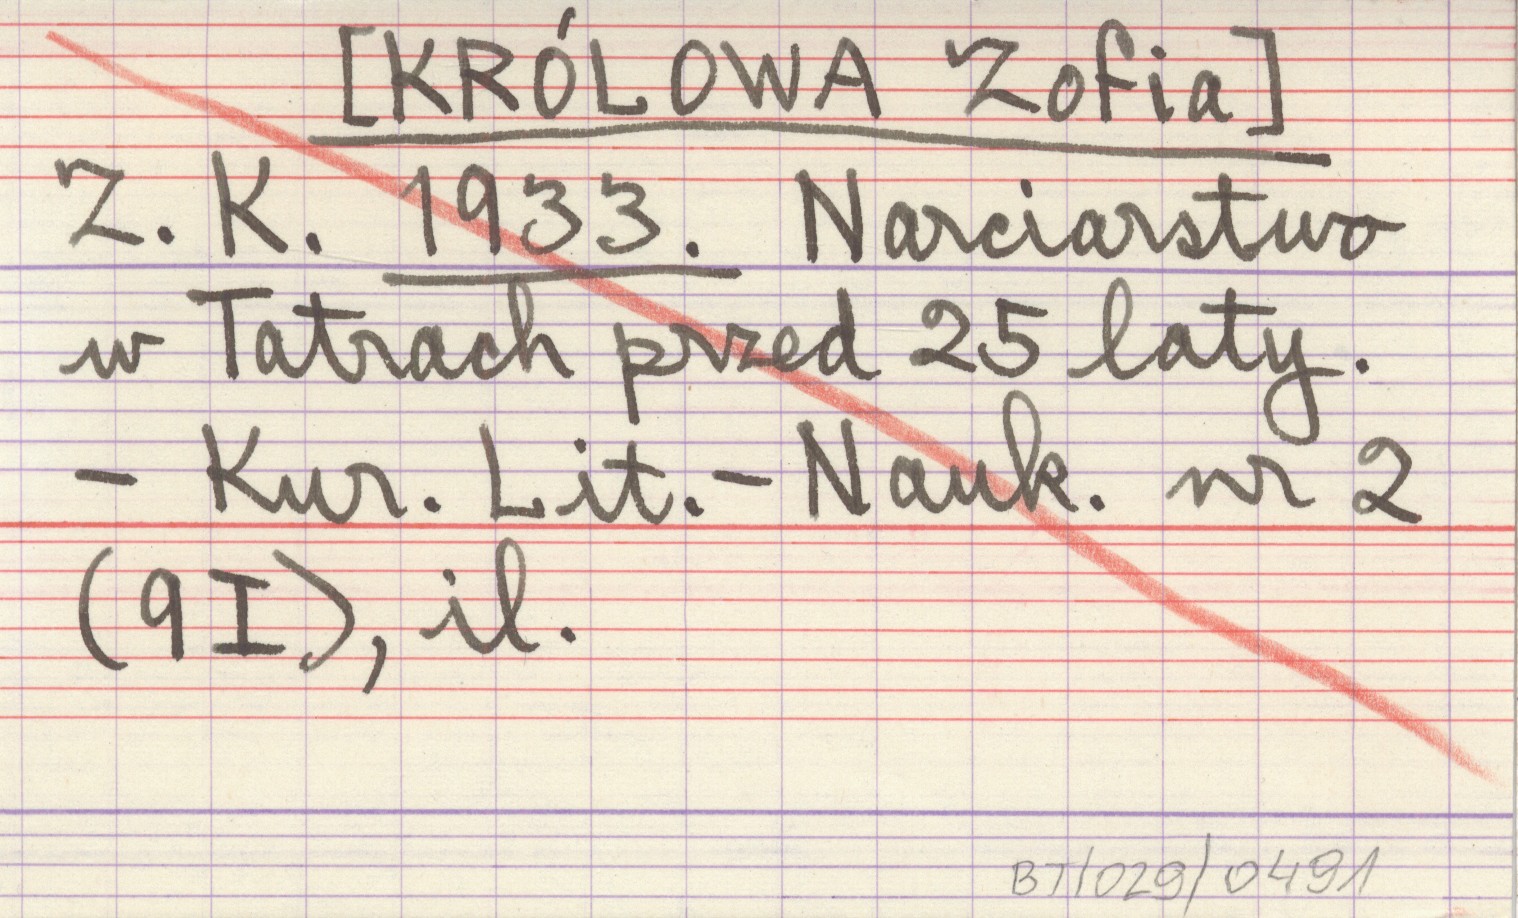 [KRÓLOWA Zofia]
Z. K. 1933. Narciarstwo
w Tatrach przed 25 laty.
- Kur. Lit.-Nauk. nr 2
(9I), il.
BT/029/0491